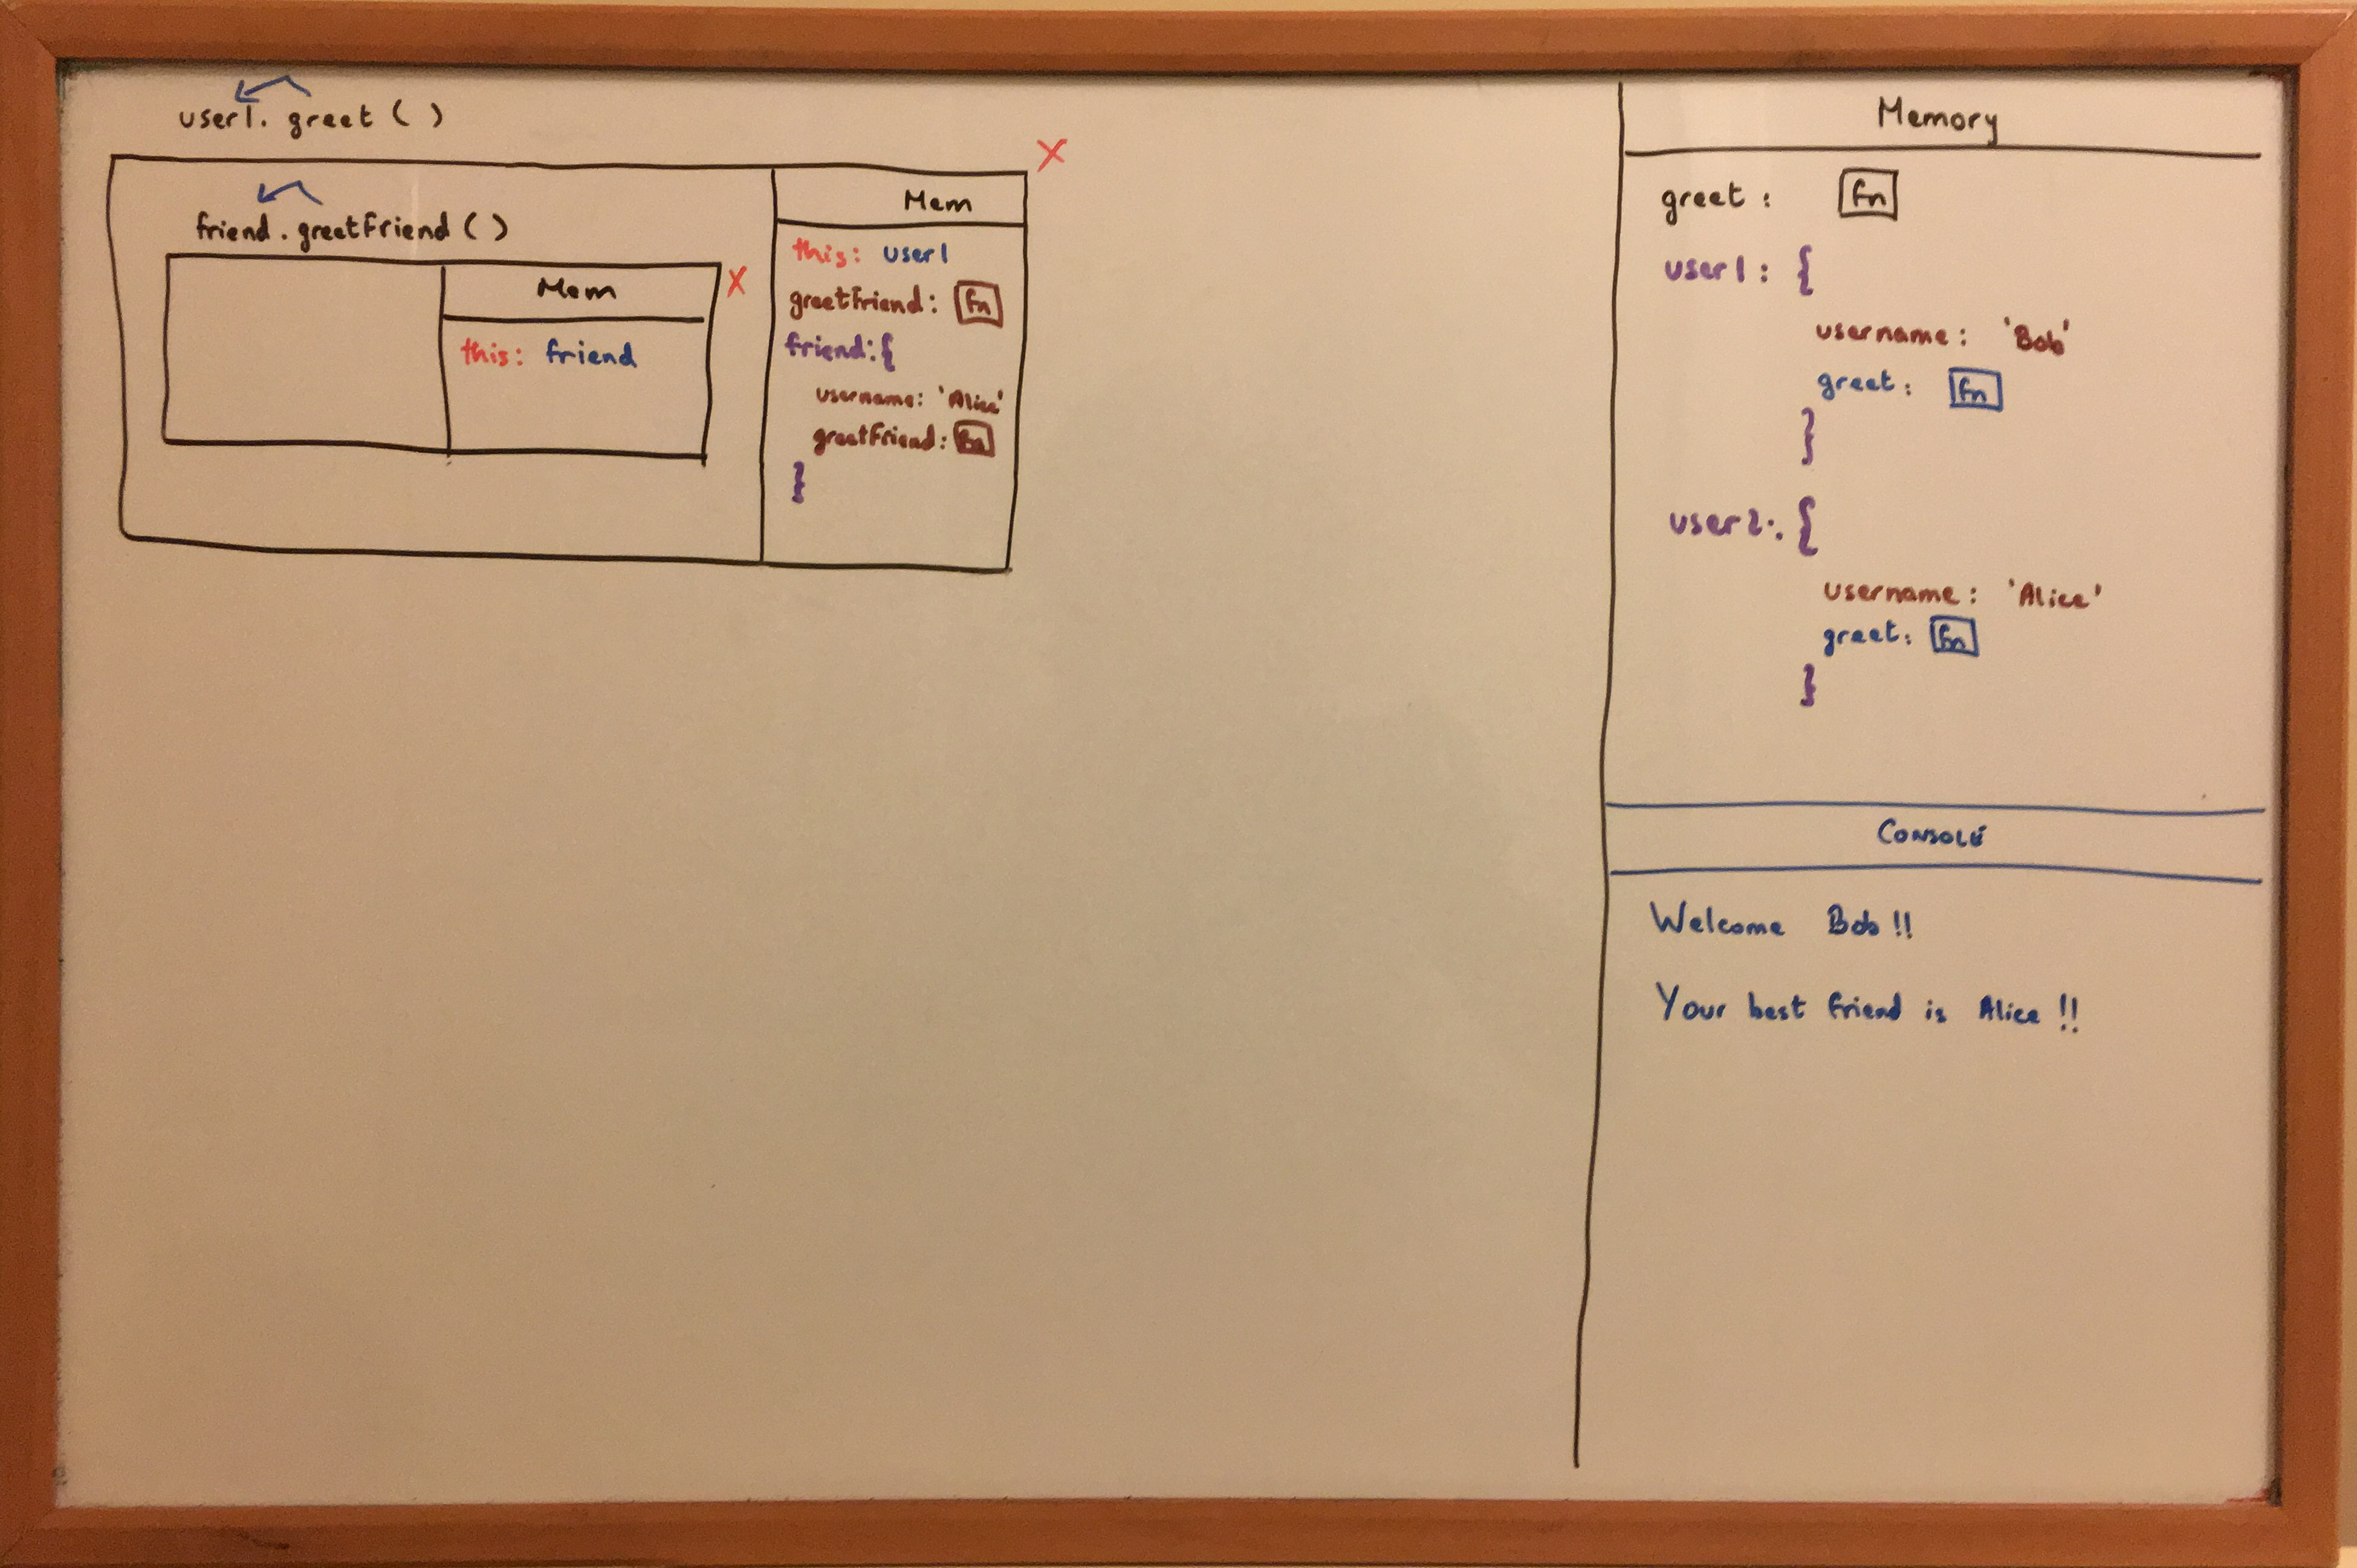 user1. greet ( )
X
friend . greetFriend ( )
X
Mem
this: friend
Mem
this: user1
greetFriend: fn
friend: {
username: 'Alice'
greetFriend: fn
}
Memory
greet : fn
user1 : {
username : 'Bob'
greet : fn
}
user2 : {
username : 'Alice'
greet : fn
}
CONSOLE
Welcome Bob !!
Your best friend is Alice !!